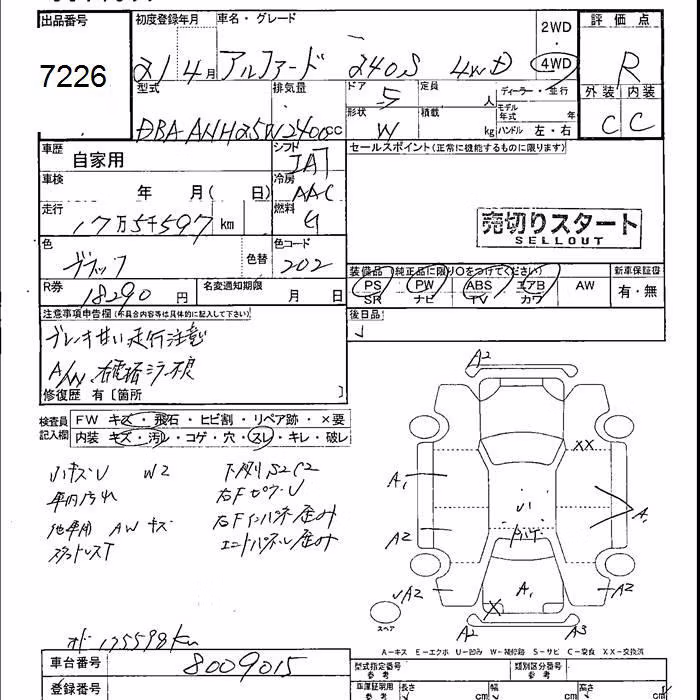 出品番号 初度登録年月 車名・グレード 2WD・4WD 評価点
7226 21 4月 アルファード 240S 4WD R
型式 排気量 ドア 5 定員 人 ディーラー・並行 外装 内装
DBA-ANH25W 2400cc 形状 W 積載 kg モデル年式 年 ハンドル 左・右 C C
車歴 自家用 シフト IAT セールスポイント(正常に機能するものに限ります)
車検 年 月( 日) 冷房 AAC
走行 17万5千597 km 燃料 ガ
売切りスタート
SELLOUT
色 ブラック 色替 色コード 202
装備品(純正品に限り○をつけてください) 新車保証書
PS PW ABS エアB AW 有・無
SR ナビ TV カワ
R券 18290 円 名変通知期限 月 日
注意事項申告欄(不具合内容等は具体的に記入して下さい) 後日品
ブレーキ甘い走行注意
A/W
修復歴 有〔箇所 〕
検査員記入欄 FW キズ・飛石・ヒビ割・リペア跡・×要
内装 キズ・汚レ・コゲ・穴・スレ・キレ・破レ
小キズU W2 下廻りS2C2
車内汚れ
右Fインパネ歪み
AWキズ
エンドパネル歪み
スタッドレスT
A2
XX
A1
A
A2
A2
A1
A2
X
A2
A3
スペア
オド 175598km
A-キス E-エクボ U-凹み W-補修跡 S-サビ C-腐食 XX-交換済
車台番号 8009015 型式指定番号 参考 類別区分番号 参考
登録番号 車庫証明用 参考 長さ cm 幅 cm 高さ cm